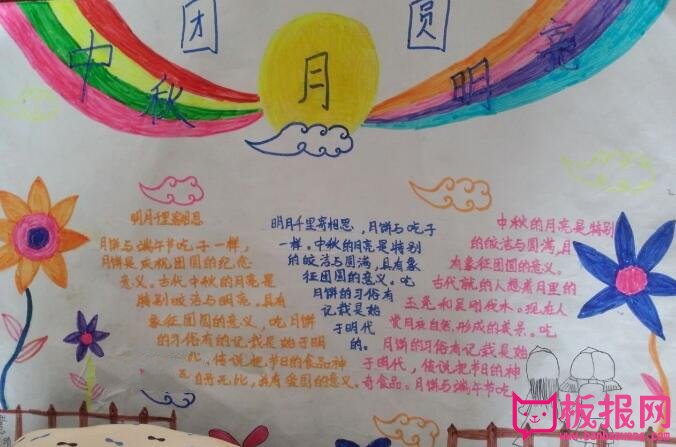 团 圆
中秋 月 明亮
明月千里寄相思
月饼与端午节吃子一样,
月饼是庆祝团圆的纪念
意义。古代中秋的月亮是
特别皎洁与明亮。具有
象征团圆的意义,吃月饼
的习俗有的记载是始于明
传说把节日的食品神
明月千里寄相思,月饼与吃子
一样。中秋的月亮是特别
的皎洁与圆满,具有象
征团圆的意义。吃
月饼的习俗有
记载是始
于明代
的。
中秋的月亮是特别
的皎洁与圆满,具
有象征团圆的意义。
古代就的人想着月里的
玉兔和吴刚伐木。现在人
赏月夜自然,形成的美景。吃
月饼的习俗有记载是始
于明代,传说把节日的
奇食品。月饼与端午节吃
板报网